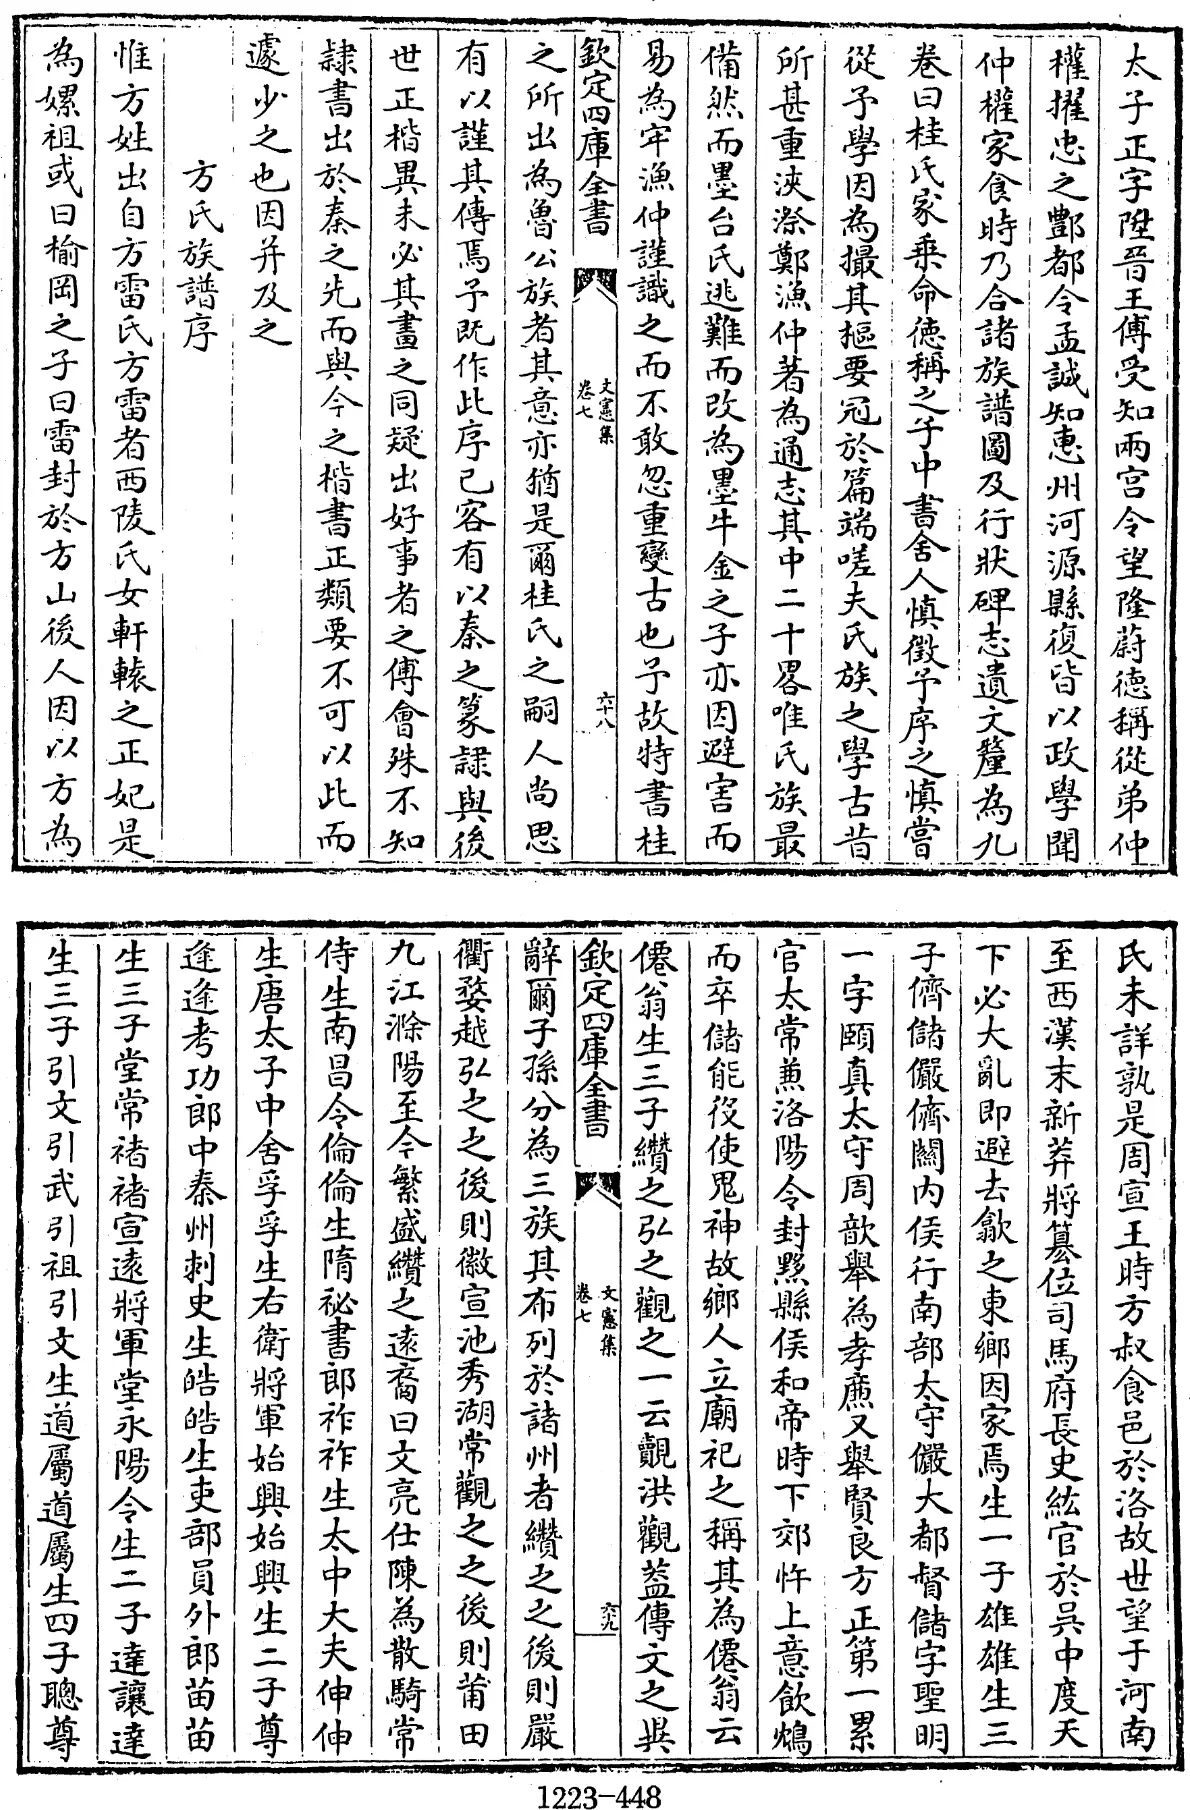 太子正字陞晉王傅受知兩宮令望隆蔚德稱從弟仲
權擢忠之酆都令孟誠知惠州河源縣復皆以政學聞
仲權家食時乃合諸族譜圖及行狀碑志遺文釐為九
卷曰桂氏家乗命德稱之子中書舍人慎徵予序之慎嘗
從予學因為撮其樞要冠於篇端嗟夫氏族之學古昔
所甚重浹漈鄭漁仲著為通志其中二十畧唯氏族最
備然而墨台氏逃難而改為墨牛金之子亦因避害而
易為牢漁仲謹識之而不敢忽重變古也予故特書桂
欽定四庫全書
文憲集
卷七
六十八
之所出為魯公族者其意亦猶是爾桂氏之嗣人尚思
有以謹其傳焉予既作此序已客有以秦之篆隷與後
世正楷異未必其畫之同疑出好事者之傅會殊不知
隷書出於秦之先而與今之楷書正類要不可以此而
遽少之也因并及之
方氏族譜序
惟方姓出自方雷氏方雷者西陵氏女軒轅之正妃是
為嫘祖或曰榆岡之子曰雷封於方山後人因以方為
氏未詳孰是周宣王時方叔食邑於洛故世望于河南
至西漢末新莽將簒位司馬府長史紘官於吳中度天
下必大亂即避去歙之東鄉因家焉生一子雄雄生三
子儕儲儼儕關内侯行南部太守儼大都督儲字聖明
一字頤真太守周歆舉為孝廉又舉賢良方正第一累
官太常兼洛陽令封黟縣侯和帝時下郊忤上意飲鴆
而卒儲能役使鬼神故鄉人立廟祀之稱其為僊翁云
僊翁生三子纘之弘之觀之一云覿洪觀葢傳文之異
欽定四庫全書
文憲集
卷七
六十九
辭爾子孫分為三族其布列於諸州者纘之之後則嚴
衢婺越弘之之後則徽宣池秀湖常觀之之後則莆田
九江滁陽至今繁盛纘之遠裔曰文亮仕陳為散騎常
侍生南昌令倫倫生隋祕書郎祚祚生太中大夫伸伸
生唐太子中舍孚孚生右衛將軍始興始興生二子尊
逵逵考功郎中泰州刺史生皓皓生吏部員外郎苗苗
生三子堂常禇禇宣遠將軍堂永陽令生二子達讓達
生三子引文引武引祖引文生道屬道屬生四子聰尊
1223-448